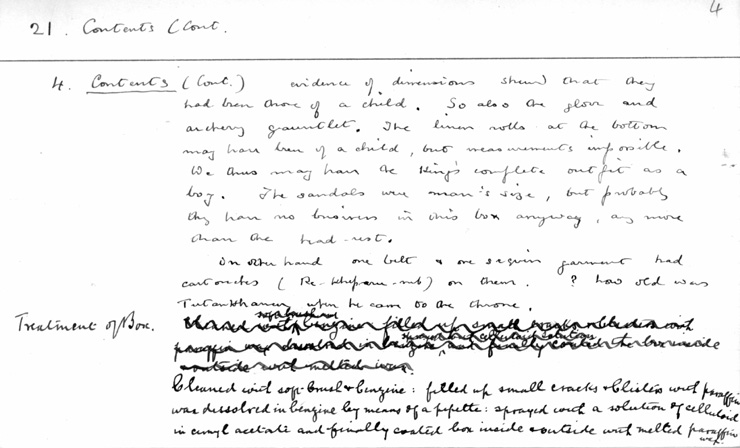 4
21. Contents (Cont.
4. Contents (Cont.) evidence of dimensions shew) that they
had been those of a child. So also the glove and
archery gauntlet. The linen rolls at the bottom
may have been of a child, but measurements impossible.
We thus may have the King's complete outfit as a
boy. The sandals were man's size, but probably
they have no business in this box anyway, any more
than the head-rest.
On other hand one belt & one sequin garment had
cartouches (Re-kheperu-neb) on them. ? how old was
Tutankhamen when he came to the throne.
Treatment of Box.
Cleaned with soft brush & benzine: filled up small cracks & blisters with paraffin
was dissolved in benzine by means of a pipette: sprayed with a solution of celluloid
in amyl acetate and finally coated box inside & outside with melted paraffin
wax.